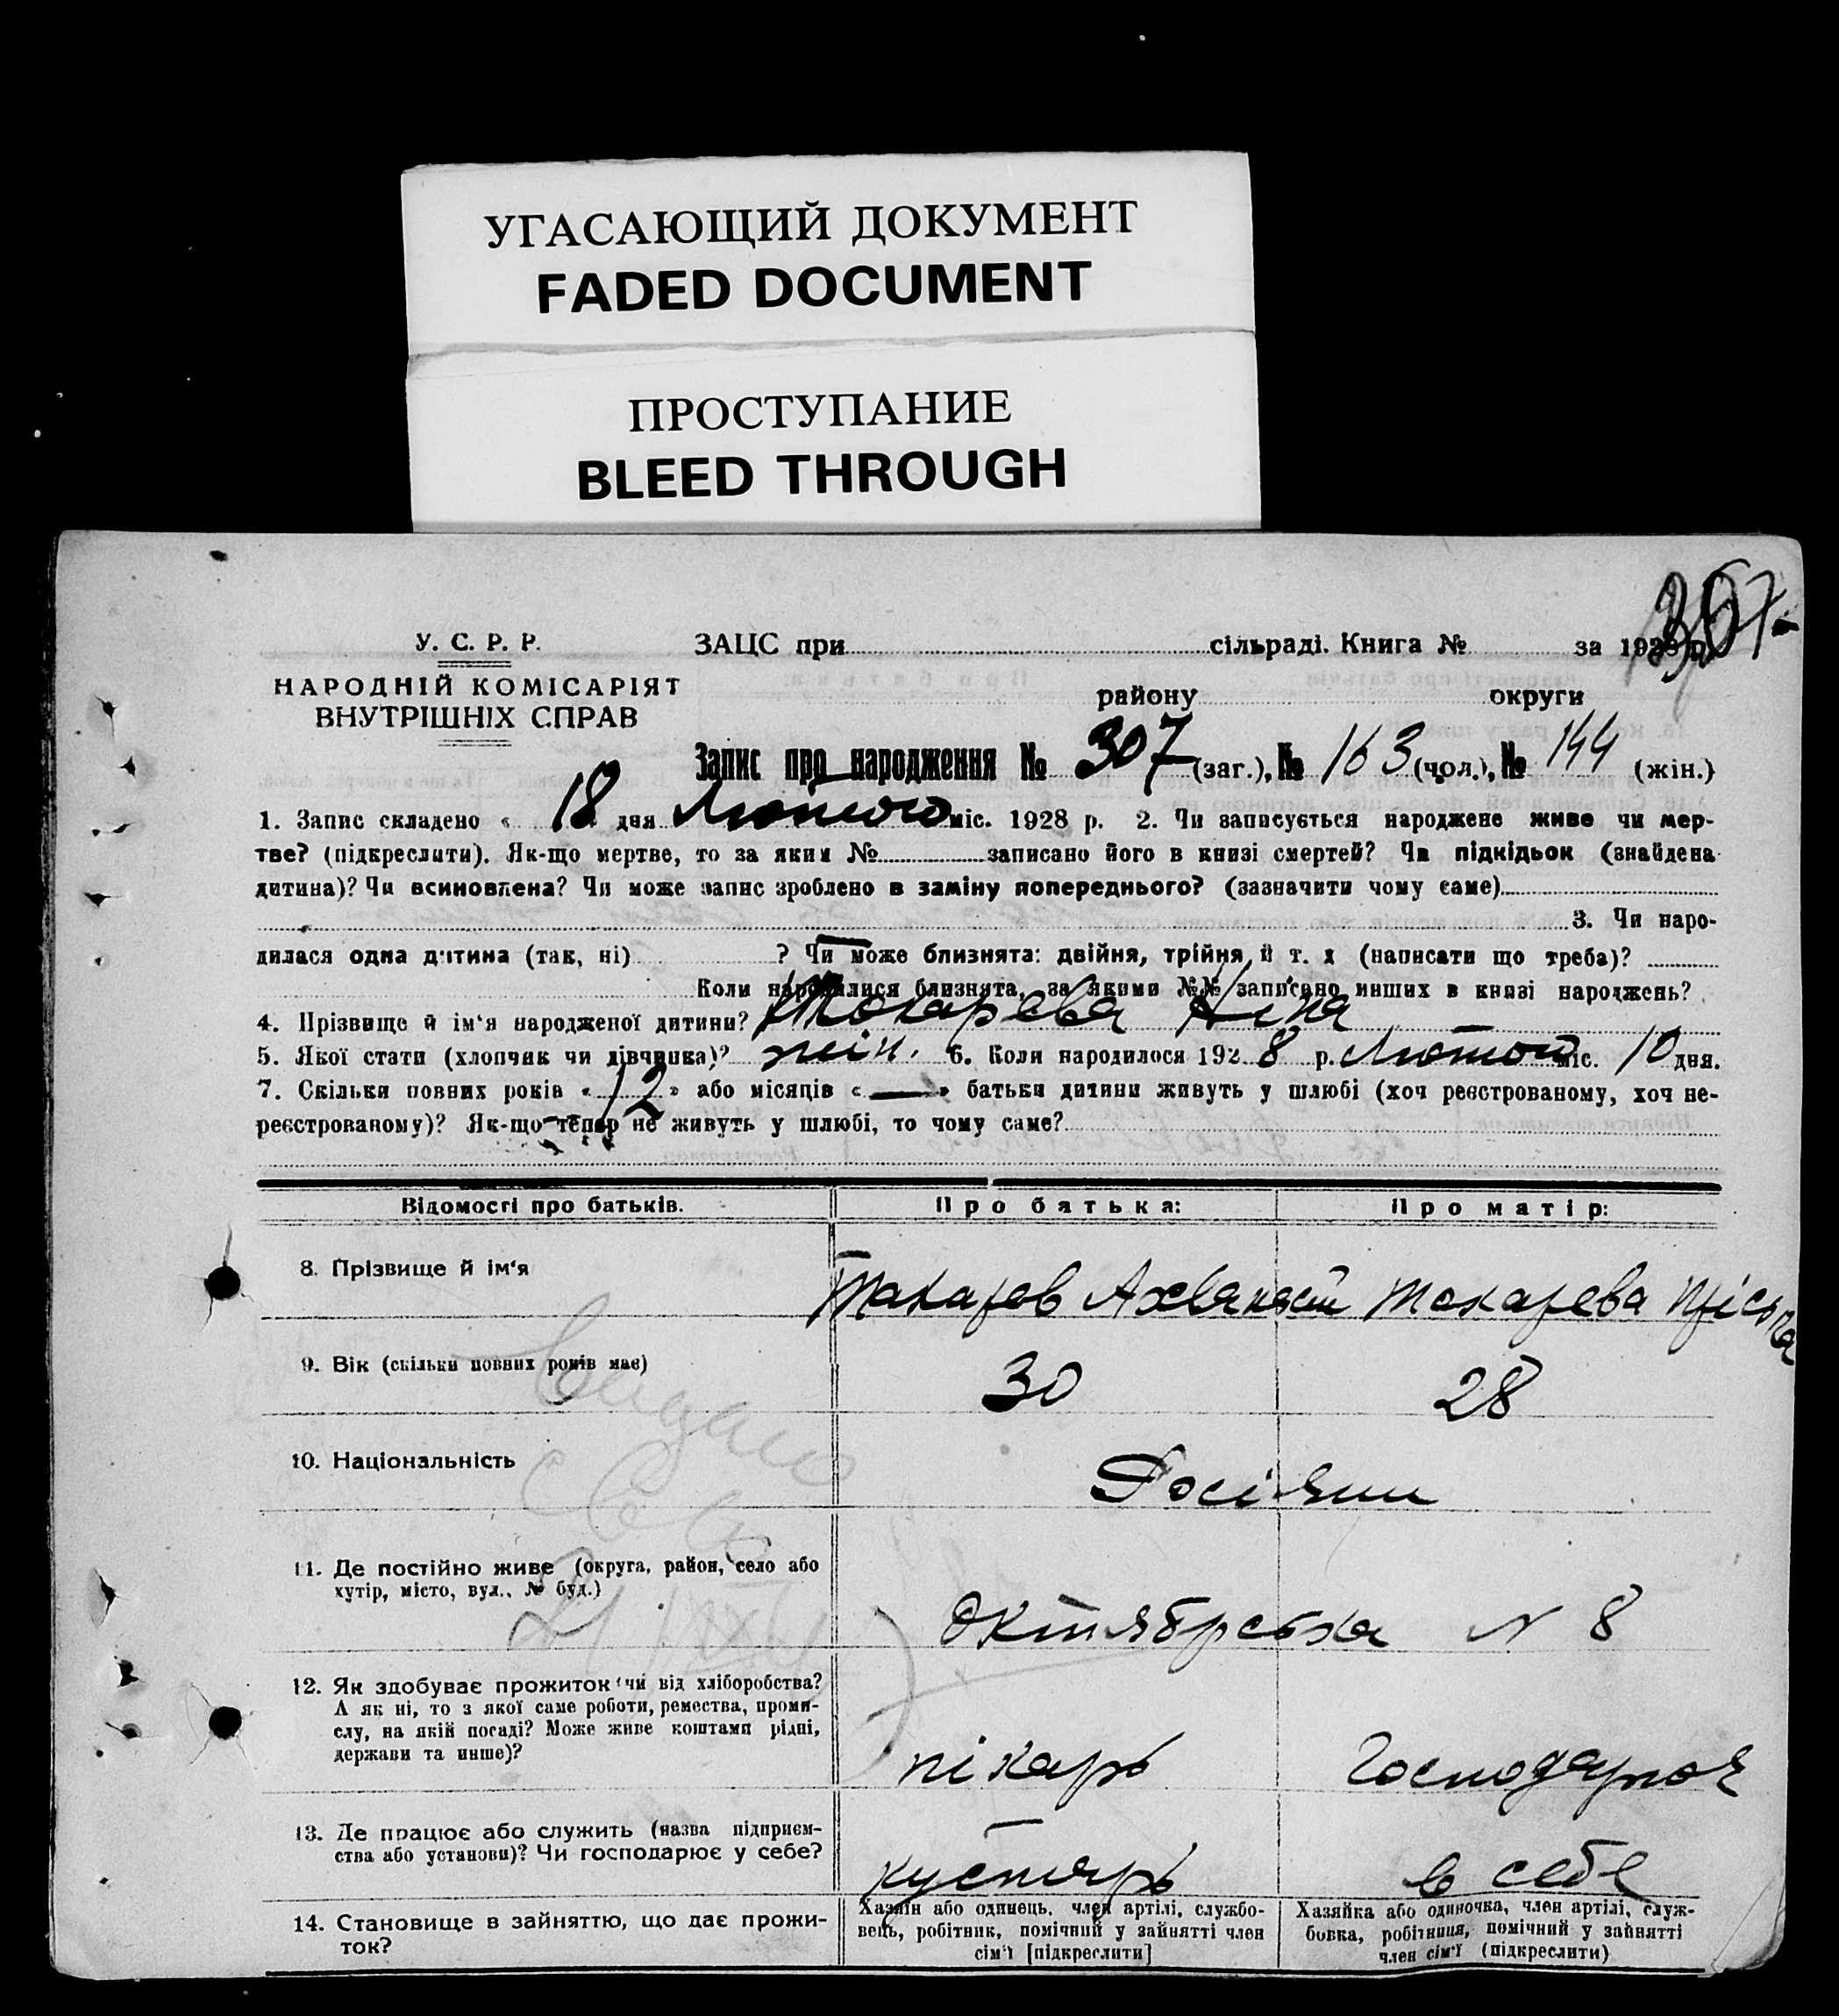 УГАСАЮЩИЙ ДОКУМЕНТ
FADED DOCUMENT
ПРОСТУПАНИЕ
BLEED THROUGH
307
У. С. Р. Р.
НАРОДНІЙ КОМІСАРІЯТ
ВНУТРІШНІХ СПРАВ
ЗАЦС при сільраді. Книга № за 1928 р.
району округи
Запис про народження № 307 (заг.), № 163 (чол.), № 144 (жін.)
1. Запис складено « 18 дня Лютого міс. 1928 р. 2. Чи записується народжене живе чи мер-
тве? (підкреслити). Як-що мертве, то за яким № записано його в книзі смертей? Чи підкідьок (знайдена
дитина)? Чи всиновлена? Чи може запис зроблено в заміну попереднього? (зазначити чому саме)
3. Чи наро-
дилася одна дитина (так, ні) ? Чи може близнята: двійня, трійня й т. д (написати що треба)?
Коли народилися близнята, за якими №№ записано инших в книзі народжень?
4. Прізвище й ім'я народженої дитини? Токарева Ніна
5. Якої стати (хлопчик чи дівчинка)? жін. 6. Коли народилося 1928 р. Лютого міс. 10 дня.
7. Скільки повних років « 12 » або місяців « — » батьки дитини живуть у шлюбі (хоч реєстрованому, хоч не-
реєстрованому)? Як-що тепер не живуть у шлюбі, то чому саме?
Відомості про батьків. Про батька: Про матір:
8. Прізвище й ім'я Токарев Токарева
9. Вік (скільки повних років має) 30 28
10. Національність Росіяни
11. Де постійно живе (округа, район, село або
хутір, місто, вул., № буд.)
Октябрська N 8
12. Як здобуває прожиток чи від хліборобства?
А як ні, то з якої саме роботи, ремества, проми-
слу, на якій посаді? Може живе коштами рідні,
держави та инше)?
пікарь Господарює
13. Де працює або служить (назва підприєм-
ства або установи)? Чи господарює у себе?
кустарь в себе
14. Становище в зайняттю, що дає прожи-
ток?
Хазяїн або одинець, член артілі, службо-
вець, робітник, помічний у зайнятті член
сім'ї [підкреслити]
Хазяйка або одиночка, член артілі, служ-
бовка, робітниця, помічний у зайнятті
член сім'ї (підкреслити)